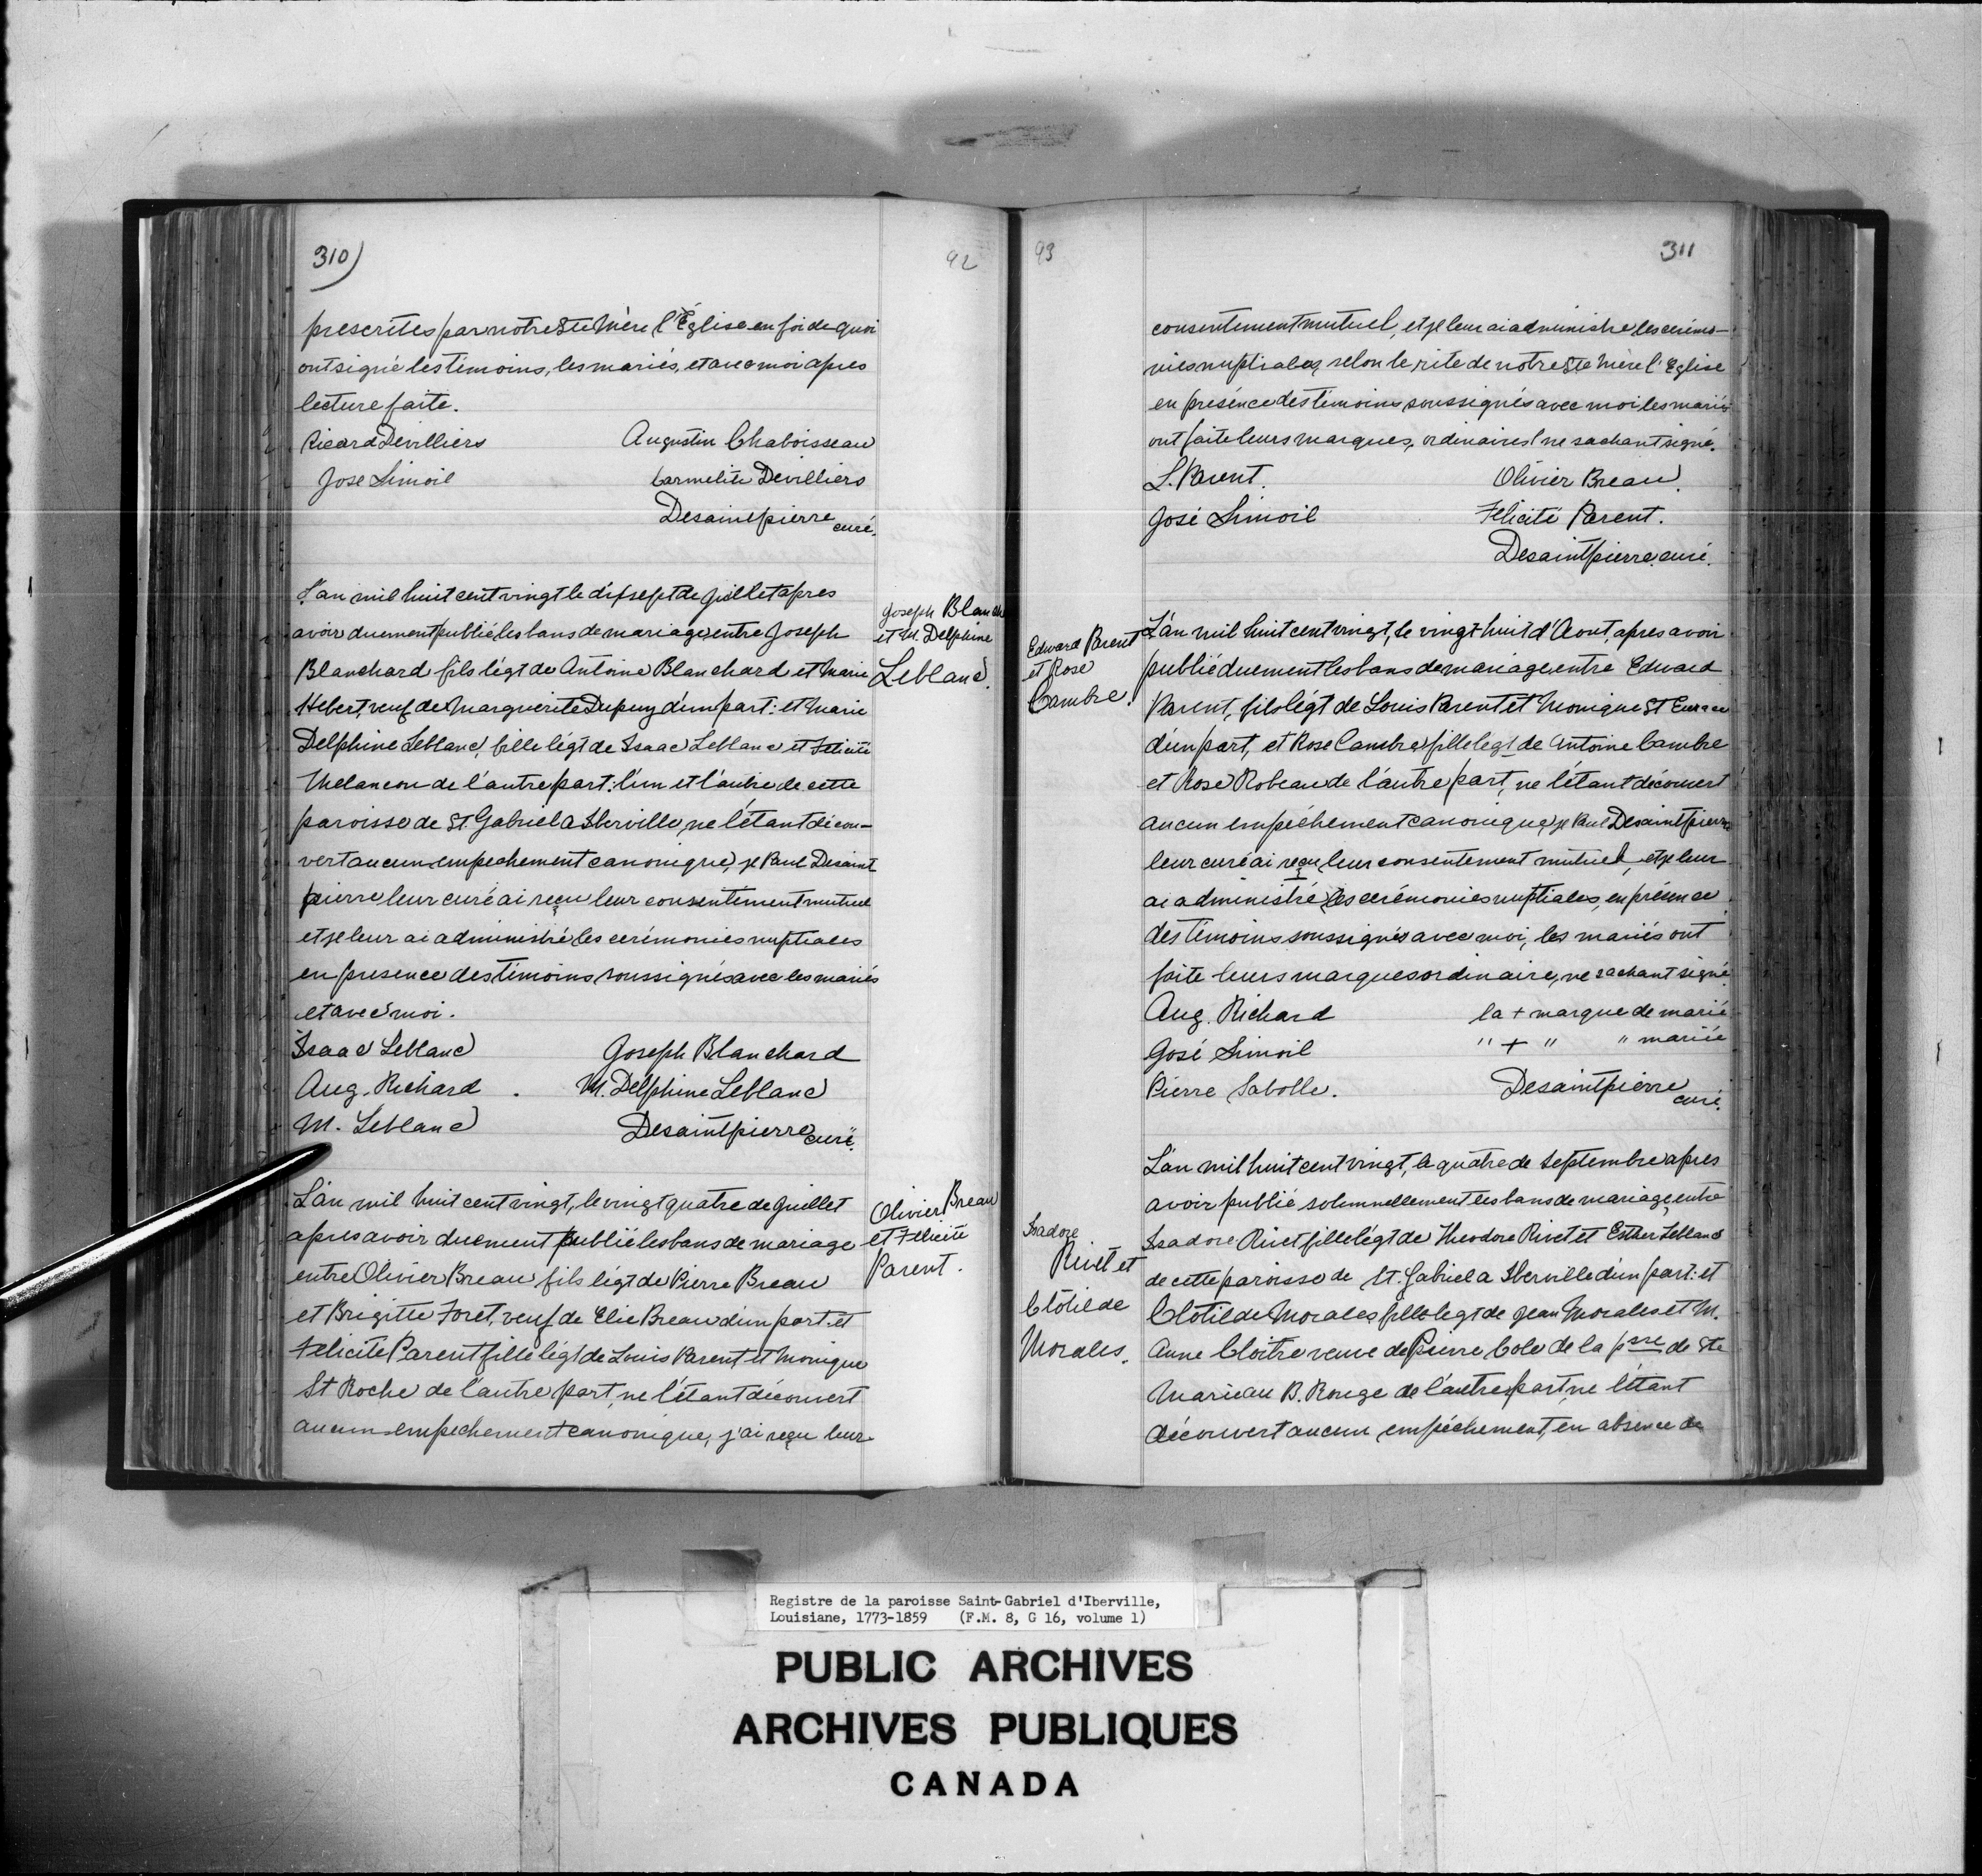 310)
92
prescrites par notre Ste Mère l'Église en foi de quoi
ont signé les témoins, les mariés, et avec moi apres
lecture faite.
Ricard Devilliers Augustin Chaboisseau
Jose Simoil Carmelite Devilliers
Desaintpierre curé.
L'an mil huit cent vingt le dixsept de Juillet apres
avoir duement publié les bans de mariage entre Joseph
Blanchard fils légt de Antoine Blanchard et Marie
Hebert, veuf de Marguerite Dupuy d'un part: et Marie
Delphine Leblanc, fille légt de Isaac Leblanc et Felicité
Melancon de l'autre part: l'un et l'autre de cette
paroisse de St. Gabriel a Iberville, ne l'étant décou-
vert aucun empechement canonique, je Paul Desaint
pierre leur curé ai reçu leur consentement mutuel
et je leur ai administré les cerémonies nuptiales
en presence des témoins soussignés avec les mariés
et avec moi.
Joseph Blanch
et M. Delphine
Leblanc.
Isaac Leblanc Joseph Blanchard
Aug. Richard . M. Delphine Leblanc
M. Leblanc Desaintpierre curé.
L'an mil huit cent vingt, le vingt quatre de Juillet
apres avoir duement publié les bans de mariage
entre Olivier Breau fils légt de Pierre Breau
et Brigitte Foret, veuf de Elie Breau d'un part. et
Felicité Parent fille légt de Louis Parent et Monique
St Roche de l'autre part, ne l'étant découvert
aucun empechement canonique, j'ai reçu leur
Olivier Breau
et Felicité
Parent.
93
311
consentement mutuel, et je leur ai administre les cerémo-
nies nuptiales, selon le rite de notre Ste Mère l'Eglise
en présence des témoins soussignés avec moi, les mariés
ont faite leurs marques, ordinaires ne sachant signé.
L. Parent. Olivier Breau.
José Simoil Felicité Parent.
Desaintpierre curé.
Edward Parent
et Rose
Cambre.
L'an mil huit cent vingt, le vingt-huit d'Aout, apres avoir
publié duement les bans de mariage entre Edward
Parent, fils légt de Louis Parent et Monique St
d'un part, et Rose Cambre fille legt de Antoine Cambre
et Rose Robeau de l'autre part, ne l'étant découvert
aucun empéchement canonique, je Paul Desaintpierre
leur curé ai reçu leur consentement mutuel, et je leur
ai administré les cerémonies nuptiales, en présence
des témoins soussignés avec moi, les mariés ont
faite leurs marques ordinaire, ne sachant signé.
Aug. Richard la + marque de marié
José Simoil " + " " mariée
Pierre Sabolle. Desaintpierre curé.
L'an mil huit cent vingt, le quatre de Septembre apres
avoir publié solennellement les bans de mariage entre
Isadore Rivet fille légt de Theodore Rivet et Esther Leblanc
de cette paroisse de St. Gabriel a Iberville d'un part: et
Clotilde Morales fille legt de Jean Morales et M.
Anne Cloitre veuve de Pierre Cole de la psse de Ste
Marie au B. Rouge de l'autre part, ne l'étant
découvert aucun empéchement, en absence de
Isadore
Rivet et
Clotilde
Morales.
Registre de la paroisse Saint-Gabriel d'Iberville,
Louisiane, 1773-1859 (F.M. 8, G 16, volume 1)
PUBLIC ARCHIVES
ARCHIVES PUBLIQUES
CANADA